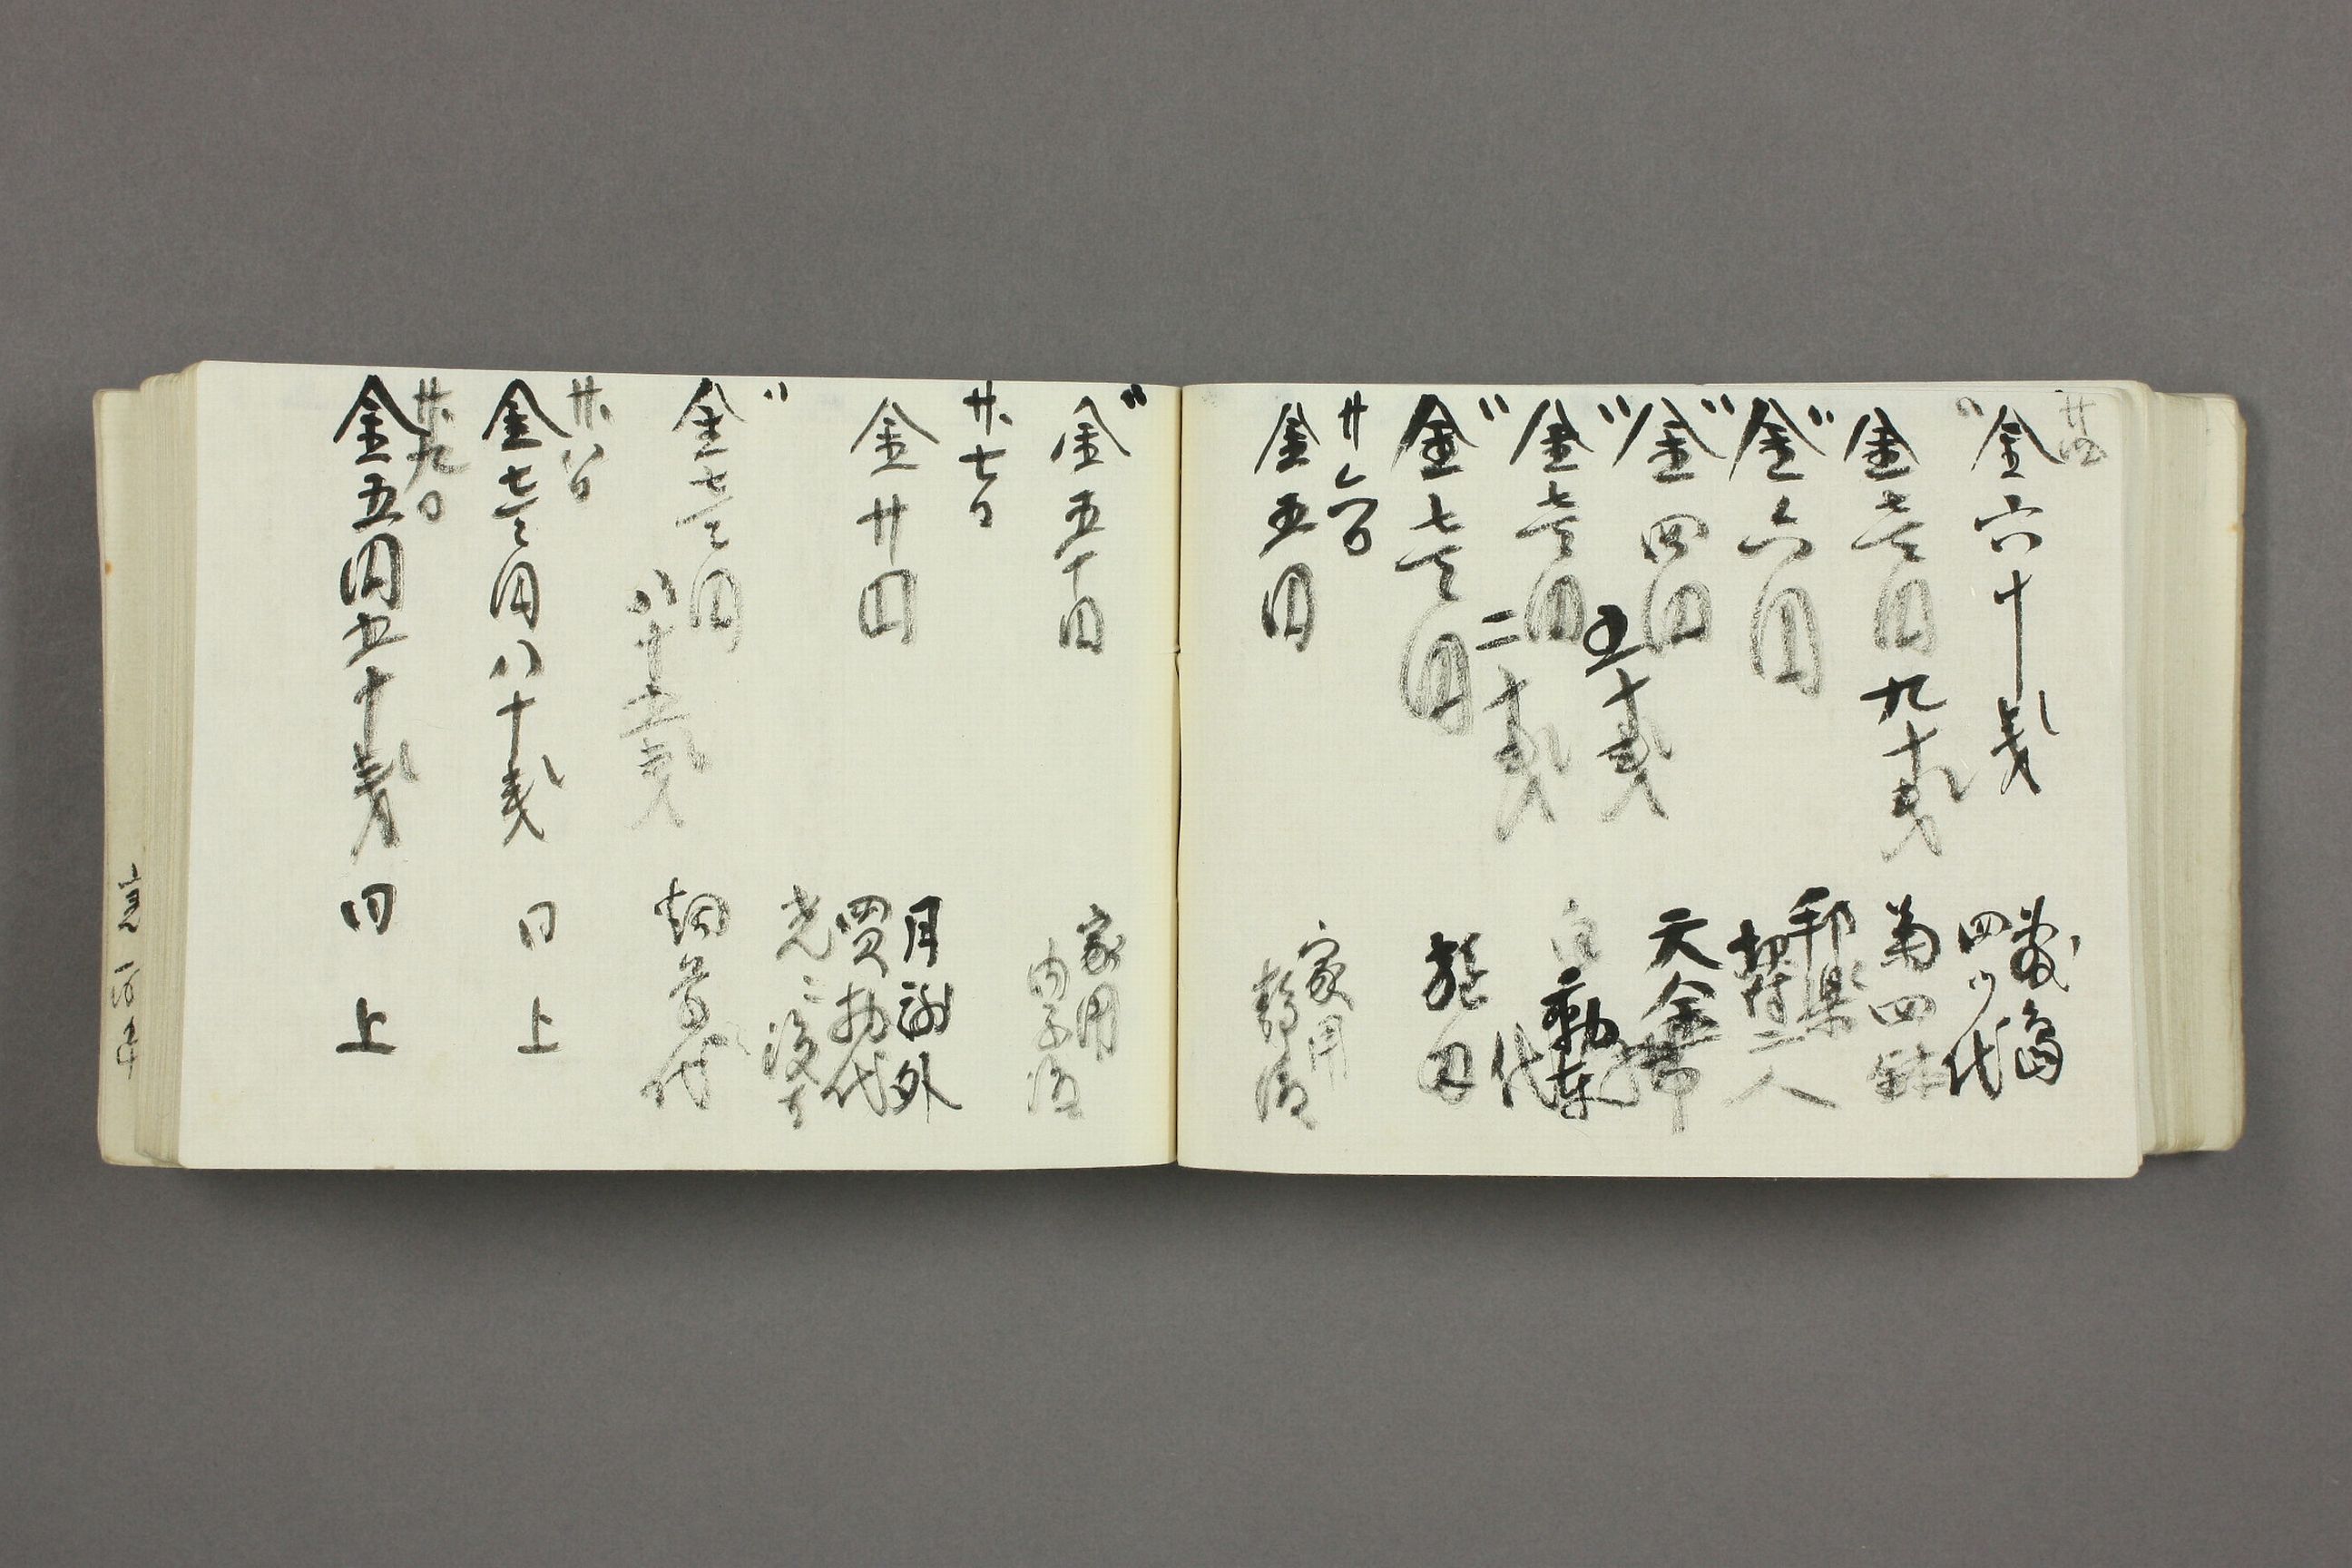 廿四
金六十銭
歳島
四ツ代
〃
金壱円九十銭
菊四鉢
〃
金六円
邦楽
切符二人
〃
金四円五十銭
天金
〃
金壱円二十銭
自動車
代
〃
金壱円
廿六日
金五円
家用
静渡
〃
金五十円
家用
内子渡
廿七日
金廿円
月謝外
買物代
光三渡ス
〃
金壱円
八十五銭
代
廿八日
金壱円八十銭
同上
廿九日
金五円五十銭
同上